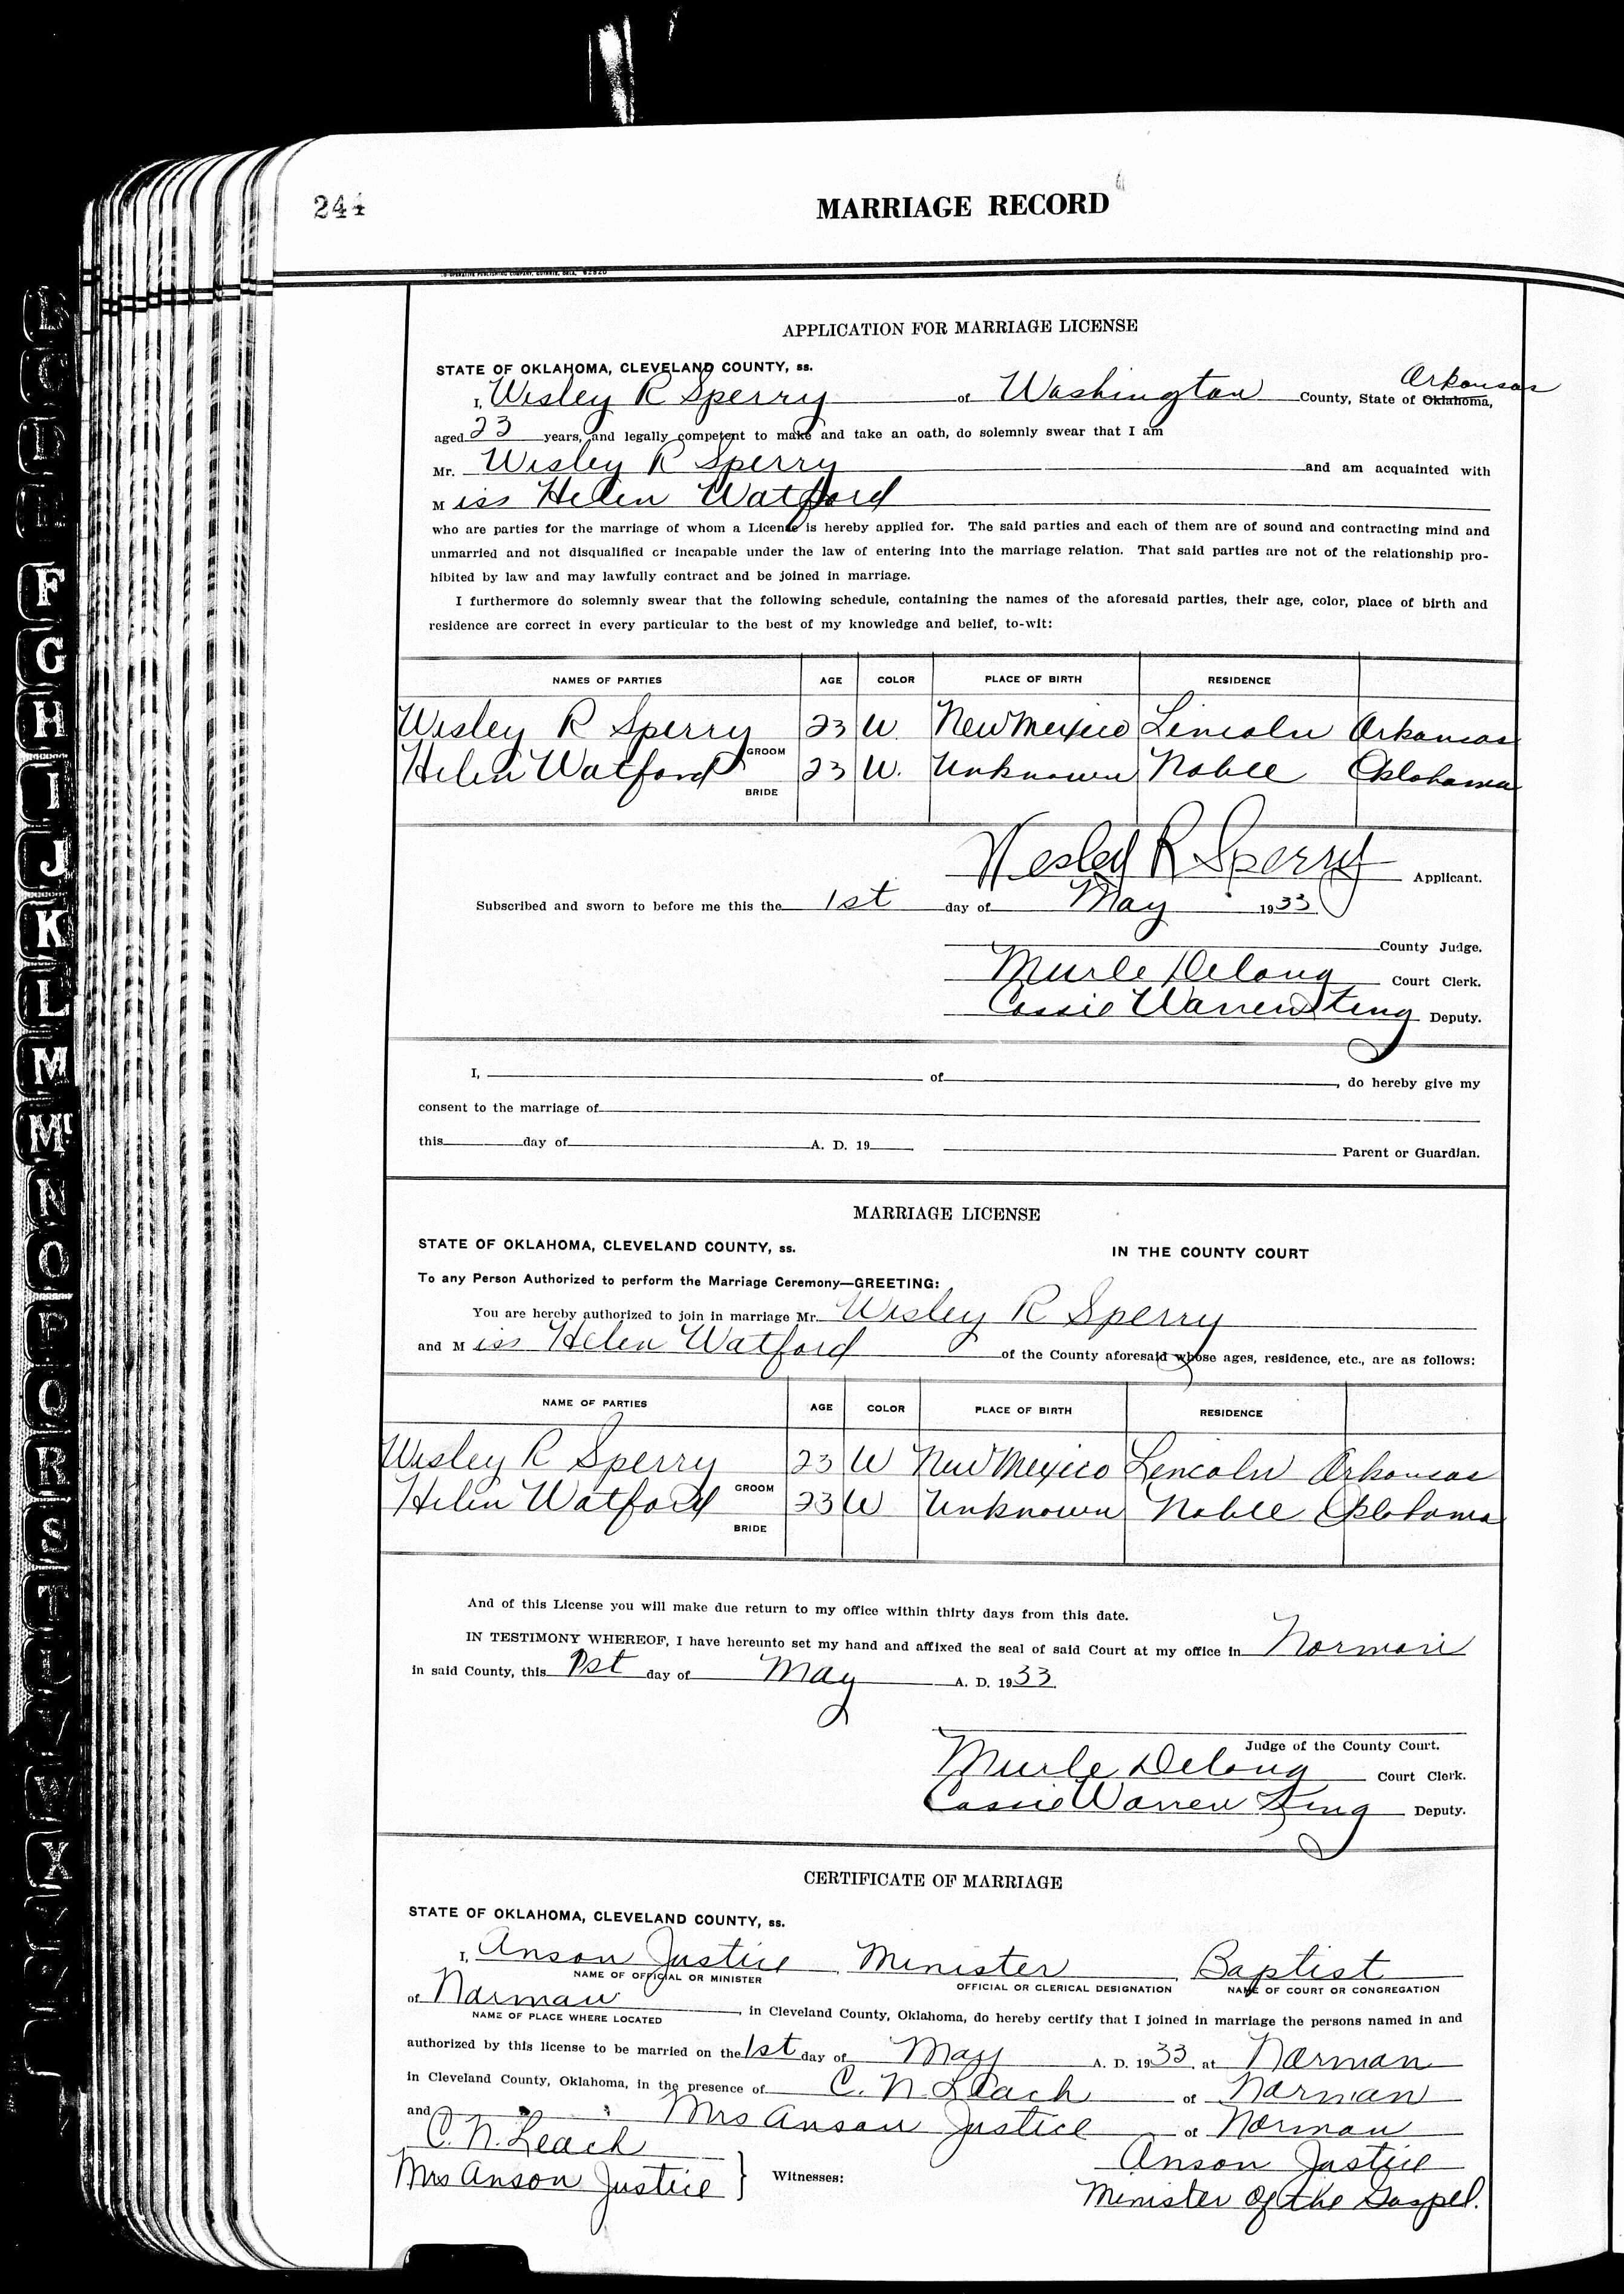 244
MARRIAGE RECORD
APPLICATION FOR MARRIAGE LICENSE
STATE OF OKLAHOMA, CLEVELAND COUNTY, ss.
I, Wesley R Sperry of Washington County, State of Oklahoma, Arkansas
aged 23 years, and legally competent to make and take an oath, do solemnly swear that I am
Mr. Wesley R Sperry and am acquainted with
Miss Helen Watford
who are parties for the marriage of whom a License is hereby applied for. The said parties and each of them are of sound and contracting mind and
unmarried and not disqualified or incapable under the law of entering into the marriage relation. That said parties are not of the relationship pro-
hibited by law and may lawfully contract and be joined in marriage.
I furthermore do solemnly swear that the following schedule, containing the names of the aforesaid parties, their age, color, place of birth and
residence are correct in every particular to the best of my knowledge and belief, to-wit:
NAMES OF PARTIES AGE COLOR PLACE OF BIRTH RESIDENCE
Wesley R Sperry GROOM 23 W. New Mexico Lincoln Arkansas
Helen Watford BRIDE 23 W. Unknown Noble Oklahoma
Wesley R Sperry Applicant.
Subscribed and sworn to before me this the 1st day of May 1933
County Judge.
Murle Delong Court Clerk.
Cassie Warren King Deputy.
I, of , do hereby give my
consent to the marriage of
this day of A. D. 19 Parent or Guardian.
MARRIAGE LICENSE
STATE OF OKLAHOMA, CLEVELAND COUNTY, ss. IN THE COUNTY COURT
To any Person Authorized to perform the Marriage Ceremony—GREETING:
You are hereby authorized to join in marriage Mr. Wesley R Sperry
and Miss Helen Watford of the County aforesaid whose ages, residence, etc., are as follows:
NAME OF PARTIES AGE COLOR PLACE OF BIRTH RESIDENCE
Wesley R Sperry GROOM 23 W New Mexico Lincoln Arkansas
Helen Watford BRIDE 23 W Unknown Noble Oklahoma
And of this License you will make due return to my office within thirty days from this date.
IN TESTIMONY WHEREOF, I have hereunto set my hand and affixed the seal of said Court at my office in Norman
in said County, this 1st day of May A. D. 1933.
Judge of the County Court.
Murle Delong Court Clerk.
Cassie Warren King Deputy.
CERTIFICATE OF MARRIAGE
STATE OF OKLAHOMA, CLEVELAND COUNTY, ss.
I, Anson Justice, Minister, Baptist
NAME OF OFFICIAL OR MINISTER OFFICIAL OR CLERICAL DESIGNATION NAME OF COURT OR CONGREGATION
of Norman, in Cleveland County, Oklahoma, do hereby certify that I joined in marriage the persons named in and
NAME OF PLACE WHERE LOCATED
authorized by this license to be married on the 1st day of May A. D. 1933, at Norman
in Cleveland County, Oklahoma, in the presence of C. N. Leach of Norman
and Mrs Anson Justice of Norman
C. N. Leach Anson Justice
Mrs Anson Justice } Witnesses: Minister of the Gospel.
F
G
H
I
J
K
L
M
Mc
N
O
P
Q
R
S
T
W
X